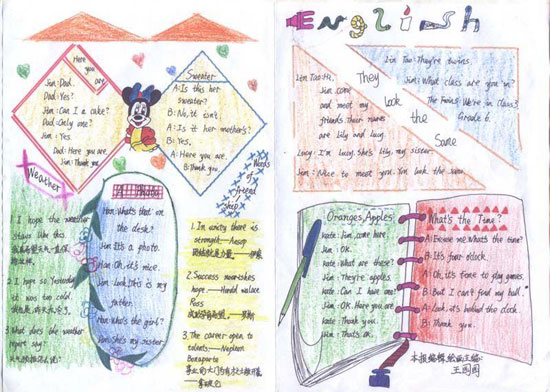 Here
you
are
Jim: Dad.
Dad: Yes?
Jim: Can I a cake?
Dad: Only one?
Jim: Yes.
Dad: Here you are.
Jim: Thank you.
Sweater
A: Is this her
sweater?
B: No, it isn't.
A: Is it her mother's?
B: Yes.
A: Here you are.
B: Thank you.
Weather
1. I hope the weather
stays like this.
2. I hope so. Yesterday
it was too cold.
3. What does the weather
report say?
A Photo
Han: What's that on
the desk?
Jim: It's a photo.
Han: Oh, it's nice.
Jim: Look, this is my
father.
Han: Who's the girl?
Jim: She's my sister.
Words
of
friend
ship
1. In unity there is
strength. —Aesop
团结就是力量。
2. Success nourishes
hope. —Ross
3. The career open to
talents. —Napoleon
Bonaparte
English
They
look
the
Same
Lin Tao: They're twins.
Jim: What class are you in?
The Twins: We're in Class 3
Grade 6.
Lin Tao: Hi,
Jim, come
and meet my
friends. Their names
are Lily and Lucy.
Lucy: I'm Lucy. She's Lily, my sister.
Jim: Nice to meet you. You look the same.
Oranges, Apples
Kate: Jim, come here.
Jim: OK.
Kate: What are these?
Jim: They're apples.
Kate: Can I have one?
Jim: OK. Here you are.
Kate: Thank you.
Jim: That's OK.
What's the Time?
A: Excuse me. What's the time?
B: It's four o'clock.
A: Oh, it's time to play games.
B: But I can't find my ball.
A: Look, it's behind the clock.
B: Thank you.